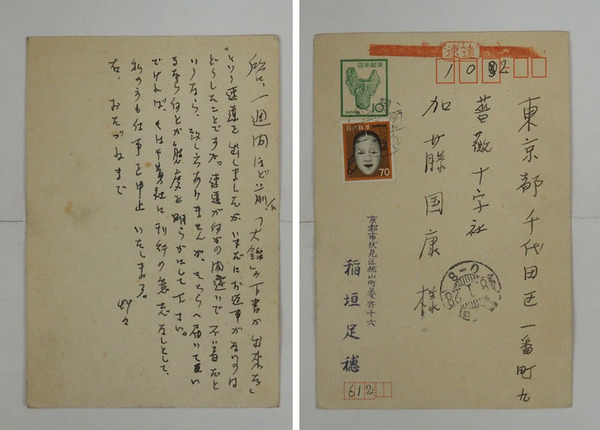 一週間ほど前「大
の下書が出来た」
という速達を出しましたが、いまだにお返事がないのは
どうしたことですか。速達が何かの間違いで不着だと
いうなら、致し方ありませんが、そちらへ届いて
るなら何とか態度を明らかにして下さい。
でければ、もはや貴社に刊行の意志なしとして、
私のうも仕事を中止いたします。
右、おたづねまで
速達
102
日本郵便
10
NIPPON
70
東京都千代田区一番町九
薔薇十字社
加藤国康様
京都市伏見区桃山町養斉十六
稲垣足穂
612